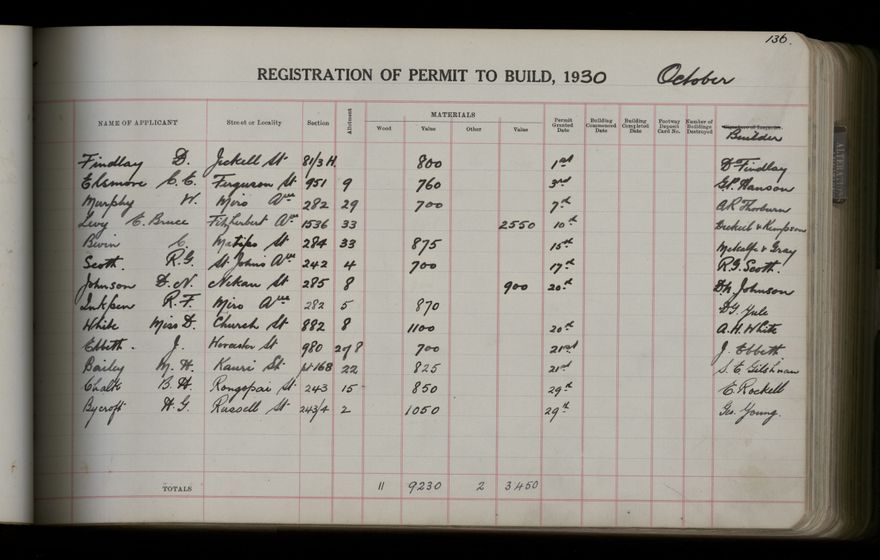 136.
REGISTRATION OF PERMIT TO BUILD, 1930 October
NAME OF APPLICANT Street or Locality Section Allotment MATERIALS Wood Value Other Value Permit Granted Date Building Commenced Date Building Completed Date Footway Deposit Card No. Number of Buildings Destroyed Builder
Findlay D. Jickell St 81/3 H 800 1st D Findlay
Elsmore C. E. Ferguson St 951 9 760 3rd G.P. Hanson
Murphy W. Miro Ave 282 29 700 7th A R Thorburn
Levy E. Bruce Fitzherbert Ave 1536 33 2550 10th & Kempson
Bevin C. Matipo St 284 33 875 15th Metcalfe & Gray
Scott. R.G. St Johns Ave 242 4 700 17th R.G. Scott.
Johnson D. N. Nikau St 285 8 900 20th D.N. Johnson
Inkpen R.F. Miro Ave 282 5 870 D G. Yule
White Miss D. Church St 882 8 1100 20th A.H. White
Ebbett. J. Worcester St 980 2 of 8 700 21st J. Ebbett
Bailey M. H. Kauri St pt 168 22 825 21st S. E.
Chalk B. H. Rongopai St 243 15 850 29th E. Rockell
Bycroft H. G. Russell St 243/4 2 1050 29th Geo. Young.
TOTALS 11 9230 2 3450
ALTERATION